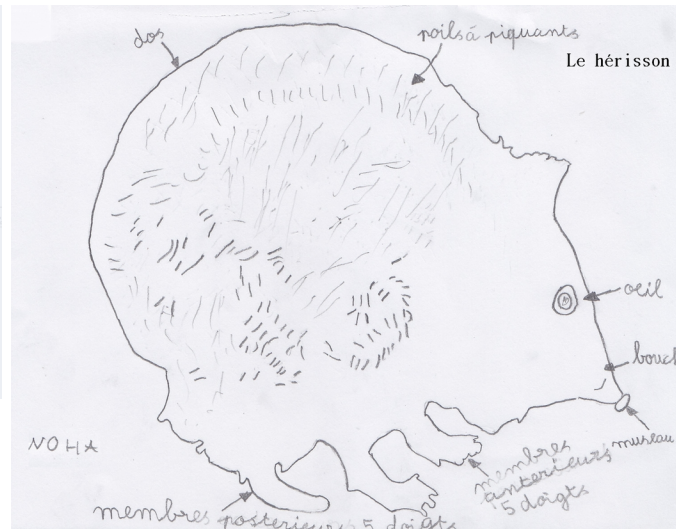 dos
poils à piquants
Le hérisson
oeil
bouch
museau
NOHA
membres
antérieurs
5 doigts
membres postérieurs 5 doigts